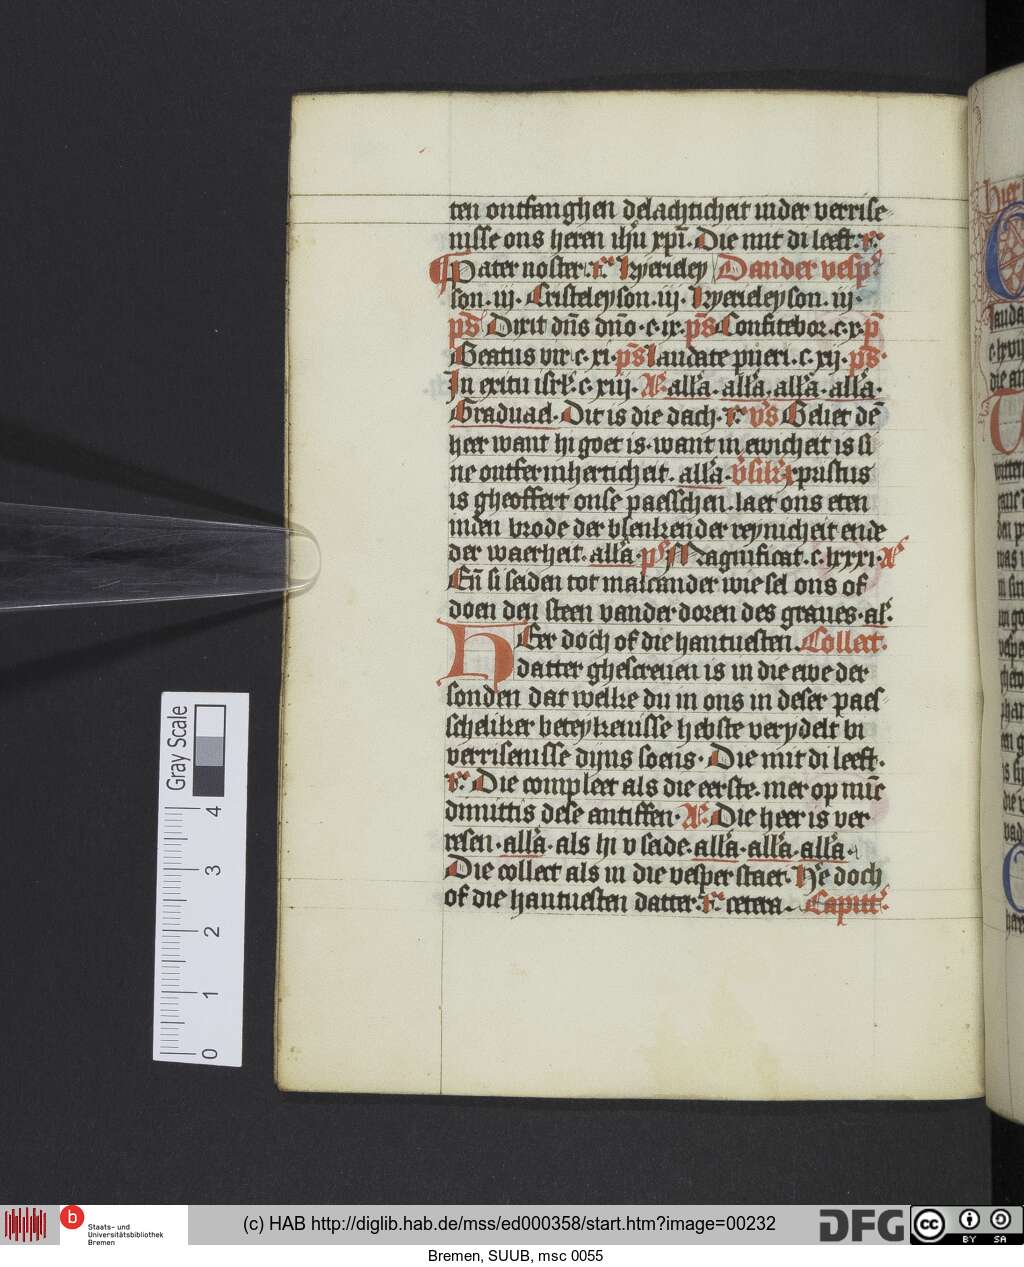 ten ontfanghen delachticheit inder verrise
nisse ons heren ihū xpī. Die mit di leeft. rͨ.
Pater noster. rͨ. kyerieley Dander vesp̄
son. iij. Cristeleyson. iij. Kyerieleyson. iij.
ps̄ Dixit dn̄s dn̄o. c. ix. ps̄ Confitebor. c. x. p̄
Beatus vir c. xi. ps̄ laudate pueri. c. xij. ps̄.
In exitu isrl̄. c. xiij. Aͤ. all̄a. all̄a. all̄a. all̄a.
Graduael. Dit is die dach. rͨ. vs̄ Beliet dē
heer want hi goet is. want in ewicheit is si
ne ontfermherticheit. all̄a. xpūstus
is gheoffert onse paesschen. laet ons eten
inden brode der blenkender reynicheit ende
der waerheit. all̄a. ps̄ Magnificat. c. lxxxi. Aͤ
En̄ si seiden tot malcander wie sel ons of
doen den steen vander doren des graues. al̄.
HEer doch of die hantuesten. Collect.
datter ghescreuen is in die ewe der
sonden dat welke du in ons in deser paes
scheliker beteykenisse hebste verydelt bi
verrisenisse dijns soens. Die mit di leeft.
rͨ. Die compleet als die eerste. mer op nūc
dimittis dese antiffen. Aͤ. Die heer is ver
resen. all̄a. als hi v seide. all̄a. all̄a. all̄a.
Die collect als in die vesper staet. He doch
of die hantuesten datter. rͨ cetera. Capitt̄.
Gray Scale
4
3
2
1
0
b
Staats- und
Universitätsbibliothek
Bremen
(c) HAB http://diglib.hab.de/mss/ed000358/start.htm?image=00232
DFG
cc
BY SA
Bremen, SUUB, msc 0055